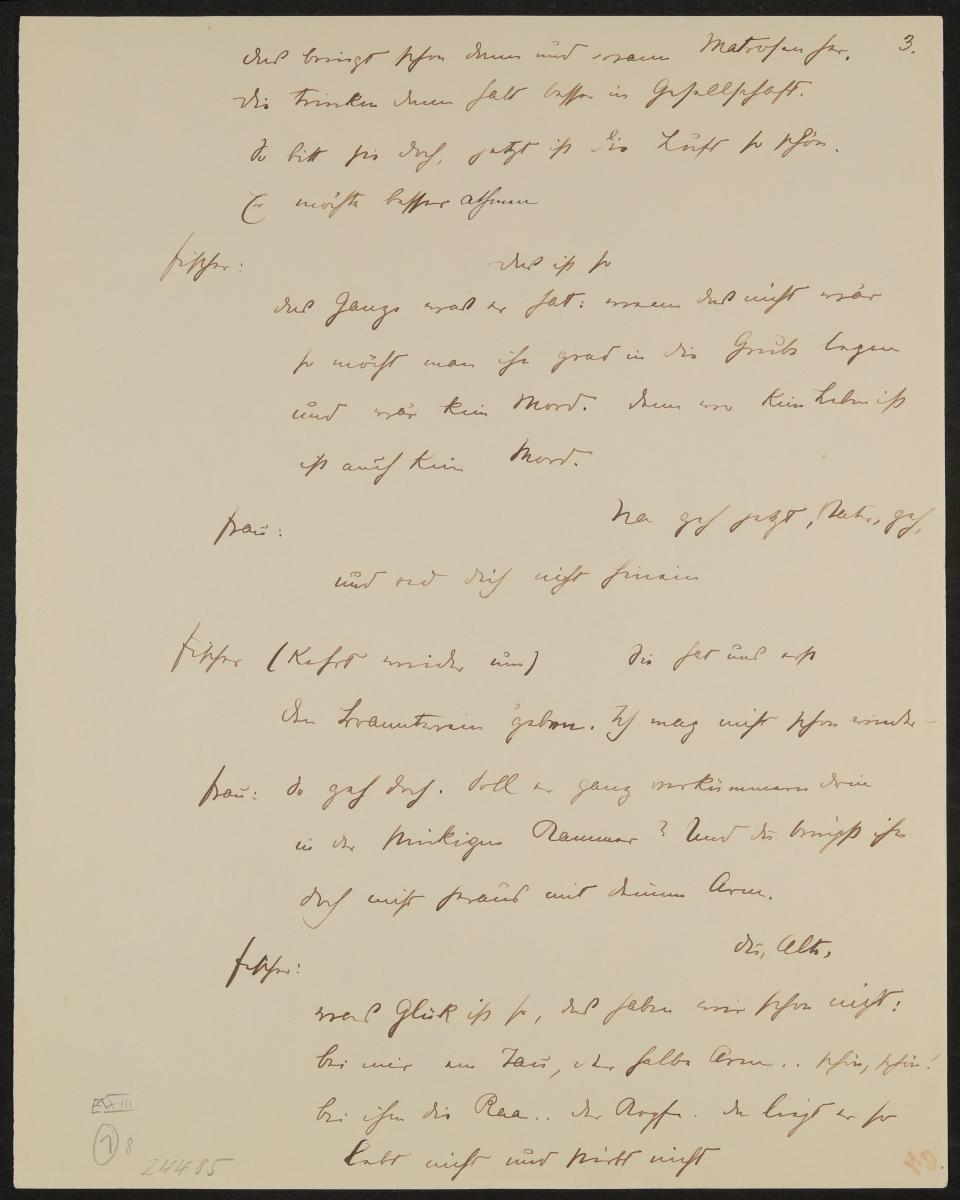 3.
das bringt schon dann und wann Matrosen her.
Die trinken dann halt besser in Gesellschaft.
So bitt sie doch, jetzt ist die Luft so schön.
Er möchte besser athmen
Fischer: Das ist so
das Ganze was er hat: wenn das nicht wär
so möcht man ihn grad in die Grube legen
und wär kein Mord. denn wo kein Leben ist
ist auch kein Mord.
Frau: Na geh jetzt, Vater, geh,
und red dich nicht hinein
Fischer (kehrt wieder um) Sie hat uns erst
den Branntwein geben. Ich mag nicht schon wieder –
Frau: So geh doch. Soll er ganz verkümmern drin
in der stickigen Kammer? Und du bringst ihn
doch nicht heraus mit deinem Arm.
Fischer: du, Alte,
was Glük ist so, das haben wir schon nicht:
bei mir am Tau, der halbe Arm .. schön, schön!
bei ihm die Raa .. der Kopf. da liegt er so
lebt nicht und stirbt nicht
E XXIII
7 8
24485